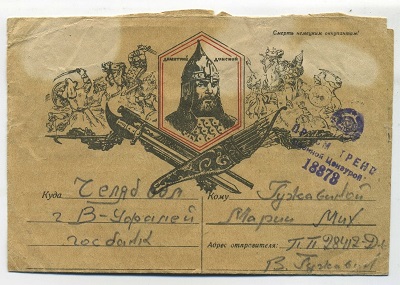 Смерть немецким оккупантам!
ДМИТРИЙ ДОНСКОЙ
18878
Куда Челяб обл.
г В-Уфалей
госбанк
Кому Гужавиной
Марии Мих
Адрес отправителя: П.П 28412-Д
В. Гужавин